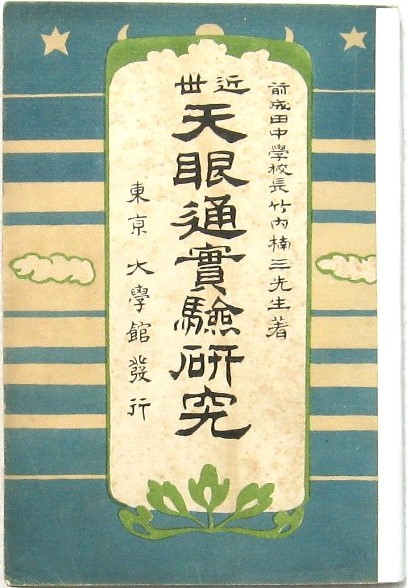 前成田中学校長竹内楠三先生著
近世
天眼通實驗研究
東京 大學館發行